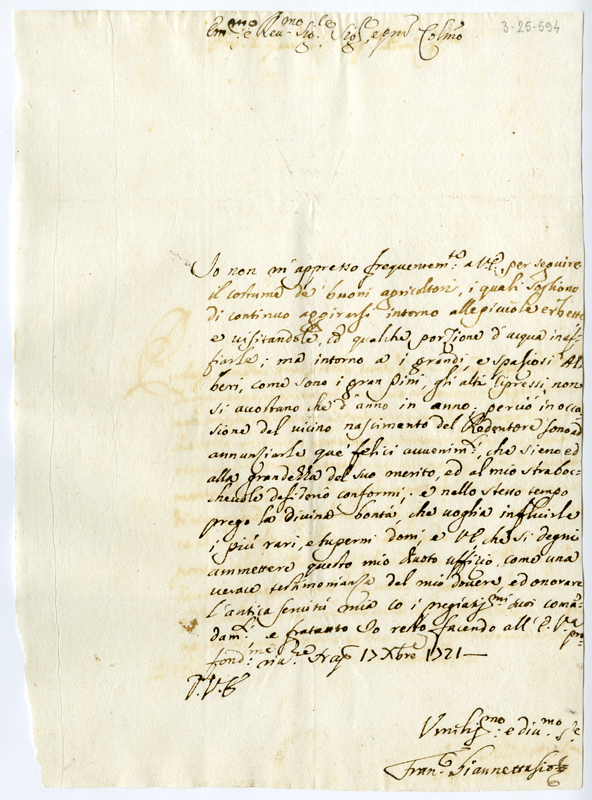 Em.mo e Rev.mo Sig.re Sig.re, e pnẽ Colmo
3-25-594
Io non m'appresso frequentem.te a V.E., per seguire
il costume de' buoni agricoltori, i quali sogliono
di continuo aggirarsi intorno alle picciole erbette
e visitandole, ed qualche porzione d'acqua inaf-
fiarle; ma intorno a i grandi, e spaziosi Al-
beri, come sono i gran pini, gli alti cipressi, non
si accostano che d'anno in anno; perciò in occa-
sione del vicino nascimento del Redentore sono ad
annunziarle que' felici avvenim.ti, che sieno ed
alla grandezza del suo merito, ed al mio straboc-
chevole desiderio conformi; e nello stesso tempo
prego la divina bontà, che voglia influirle
i più rari, e superni doni, e V.E. che si degni
ammettere questo mio divoto uffizio, come una
verace testimonianza del mio dovere, ed onorare
l'antica servitù mia co i pregiatiss.mi suoi coman-
dam.ti, e fratanto Io resto facendo all'E. V.ra pro-
fond.me riv.ze Nap. 17 Xbre 1721
D. V. E.
Umiliss.mo e div.mo s.re
Fran.co Giannettasio